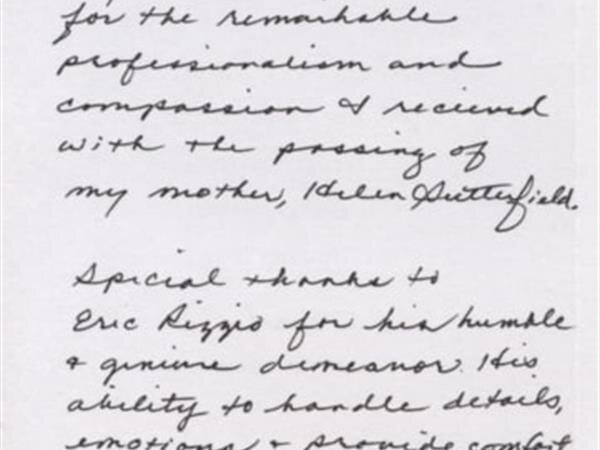 for the remarkable
professionalism and
compassion I recieved
with the passing of
my mother, Helen Butterfield.
Special thanks to
Eric Rizzio for his humble
& geniune demeanor. His
ability to handle details,
emotions & provide comfort